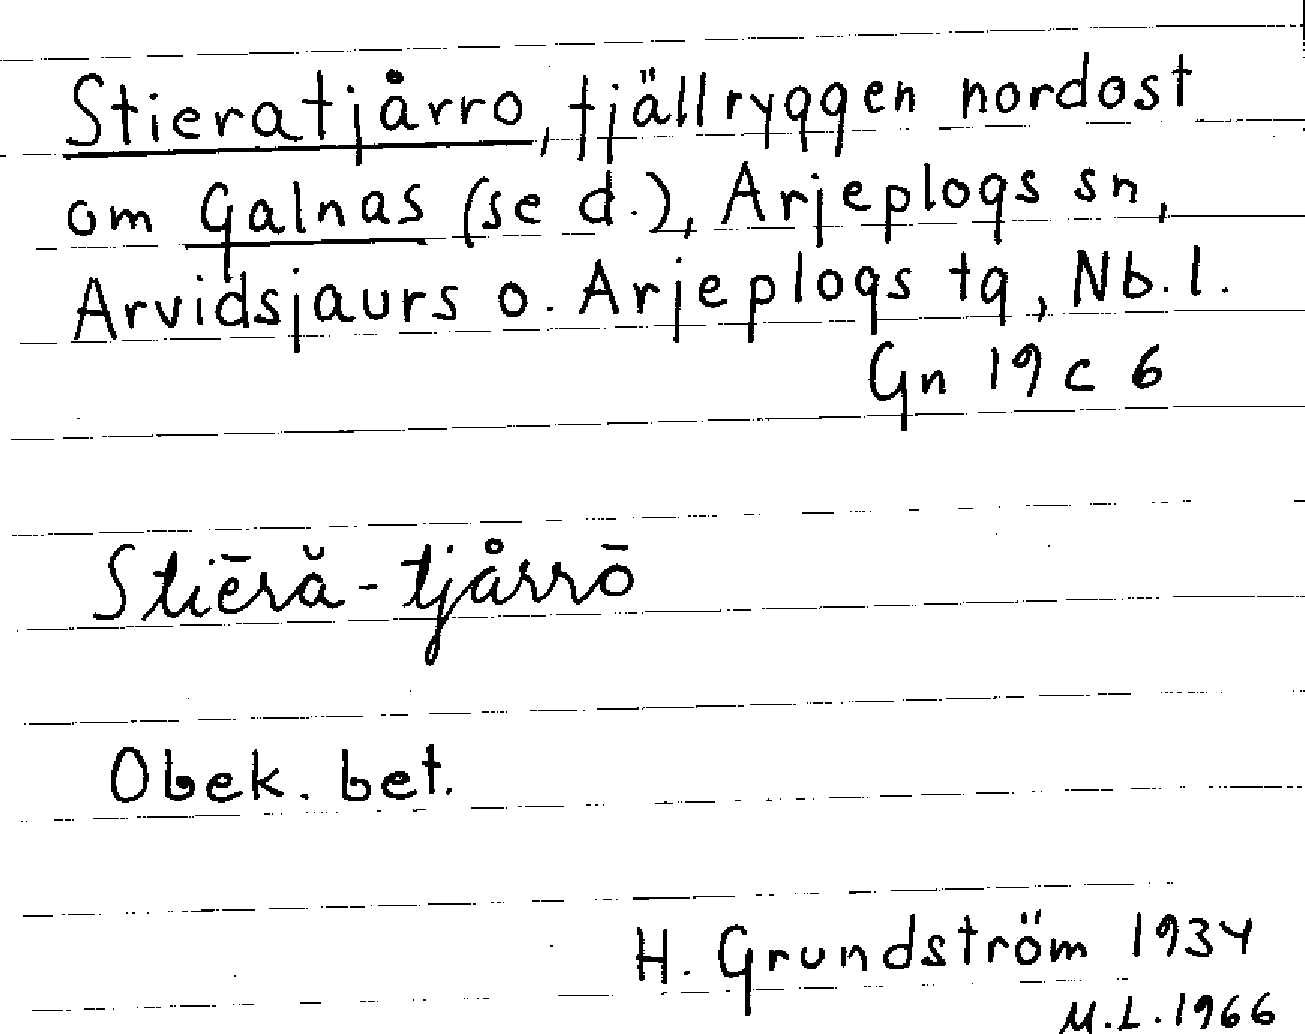 Stieratjårro, tjällryggen nordost
om Galnas (se d.), Arjeplogs sn,
Arvidsjaurs o. Arjeplogs tg, Nb.l.
Gn 19 c 6
Stiēră-tjårrō
Obek. bet.
H. Grundström 1934
M.L. 1966